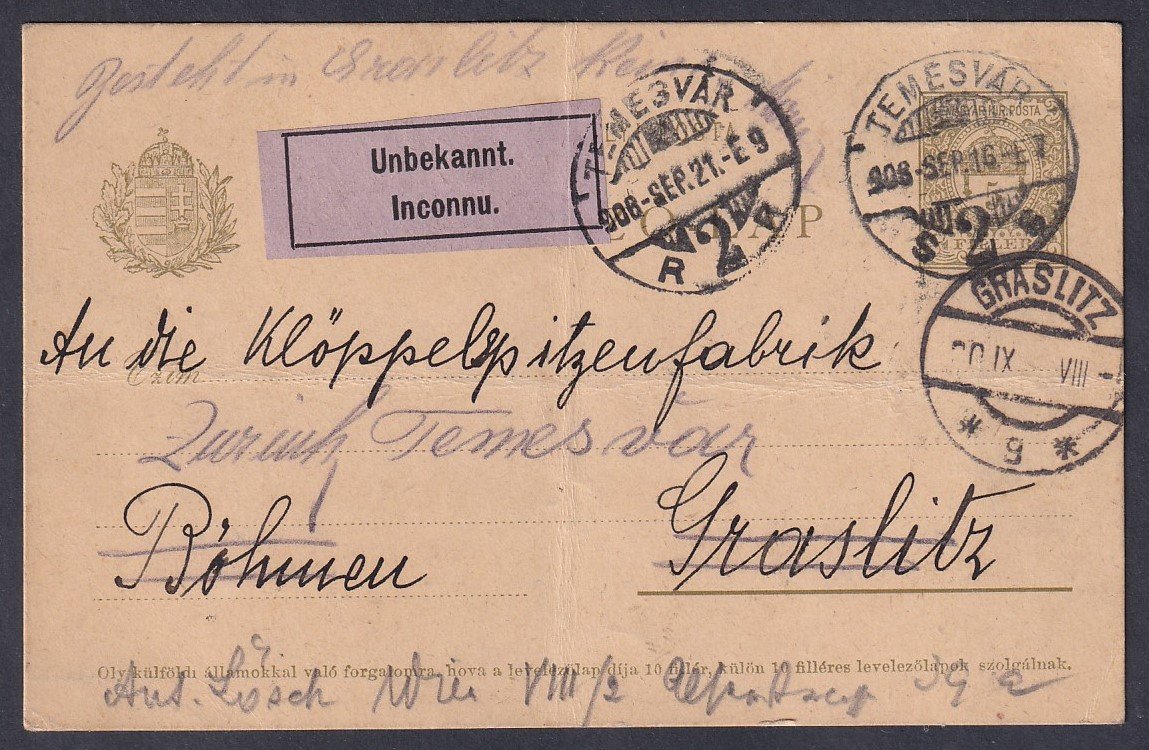 besteht in Graslitz Kein
Unbekannt.
Inconnu.
TEMESVÁR
908-SEP.21.-E 9
R 2 R
TEMESVÁR
908-SEP.16.-E 7
S 2 S
MAGY. KIR. POSTA
5
FILLÉR
GRASLITZ
20 IX VIII
* g *
An die Klöppelspitzenfabrik
Czim
Zurück Temesvár
Böhmen Graslitz
Oly külföldi államokkal való forgalomra, hova a levelezőlap díja 10 fillér, külön 10 filléres levelezőlapok szolgálnak.
Ant. Lösch Wien VIII/2